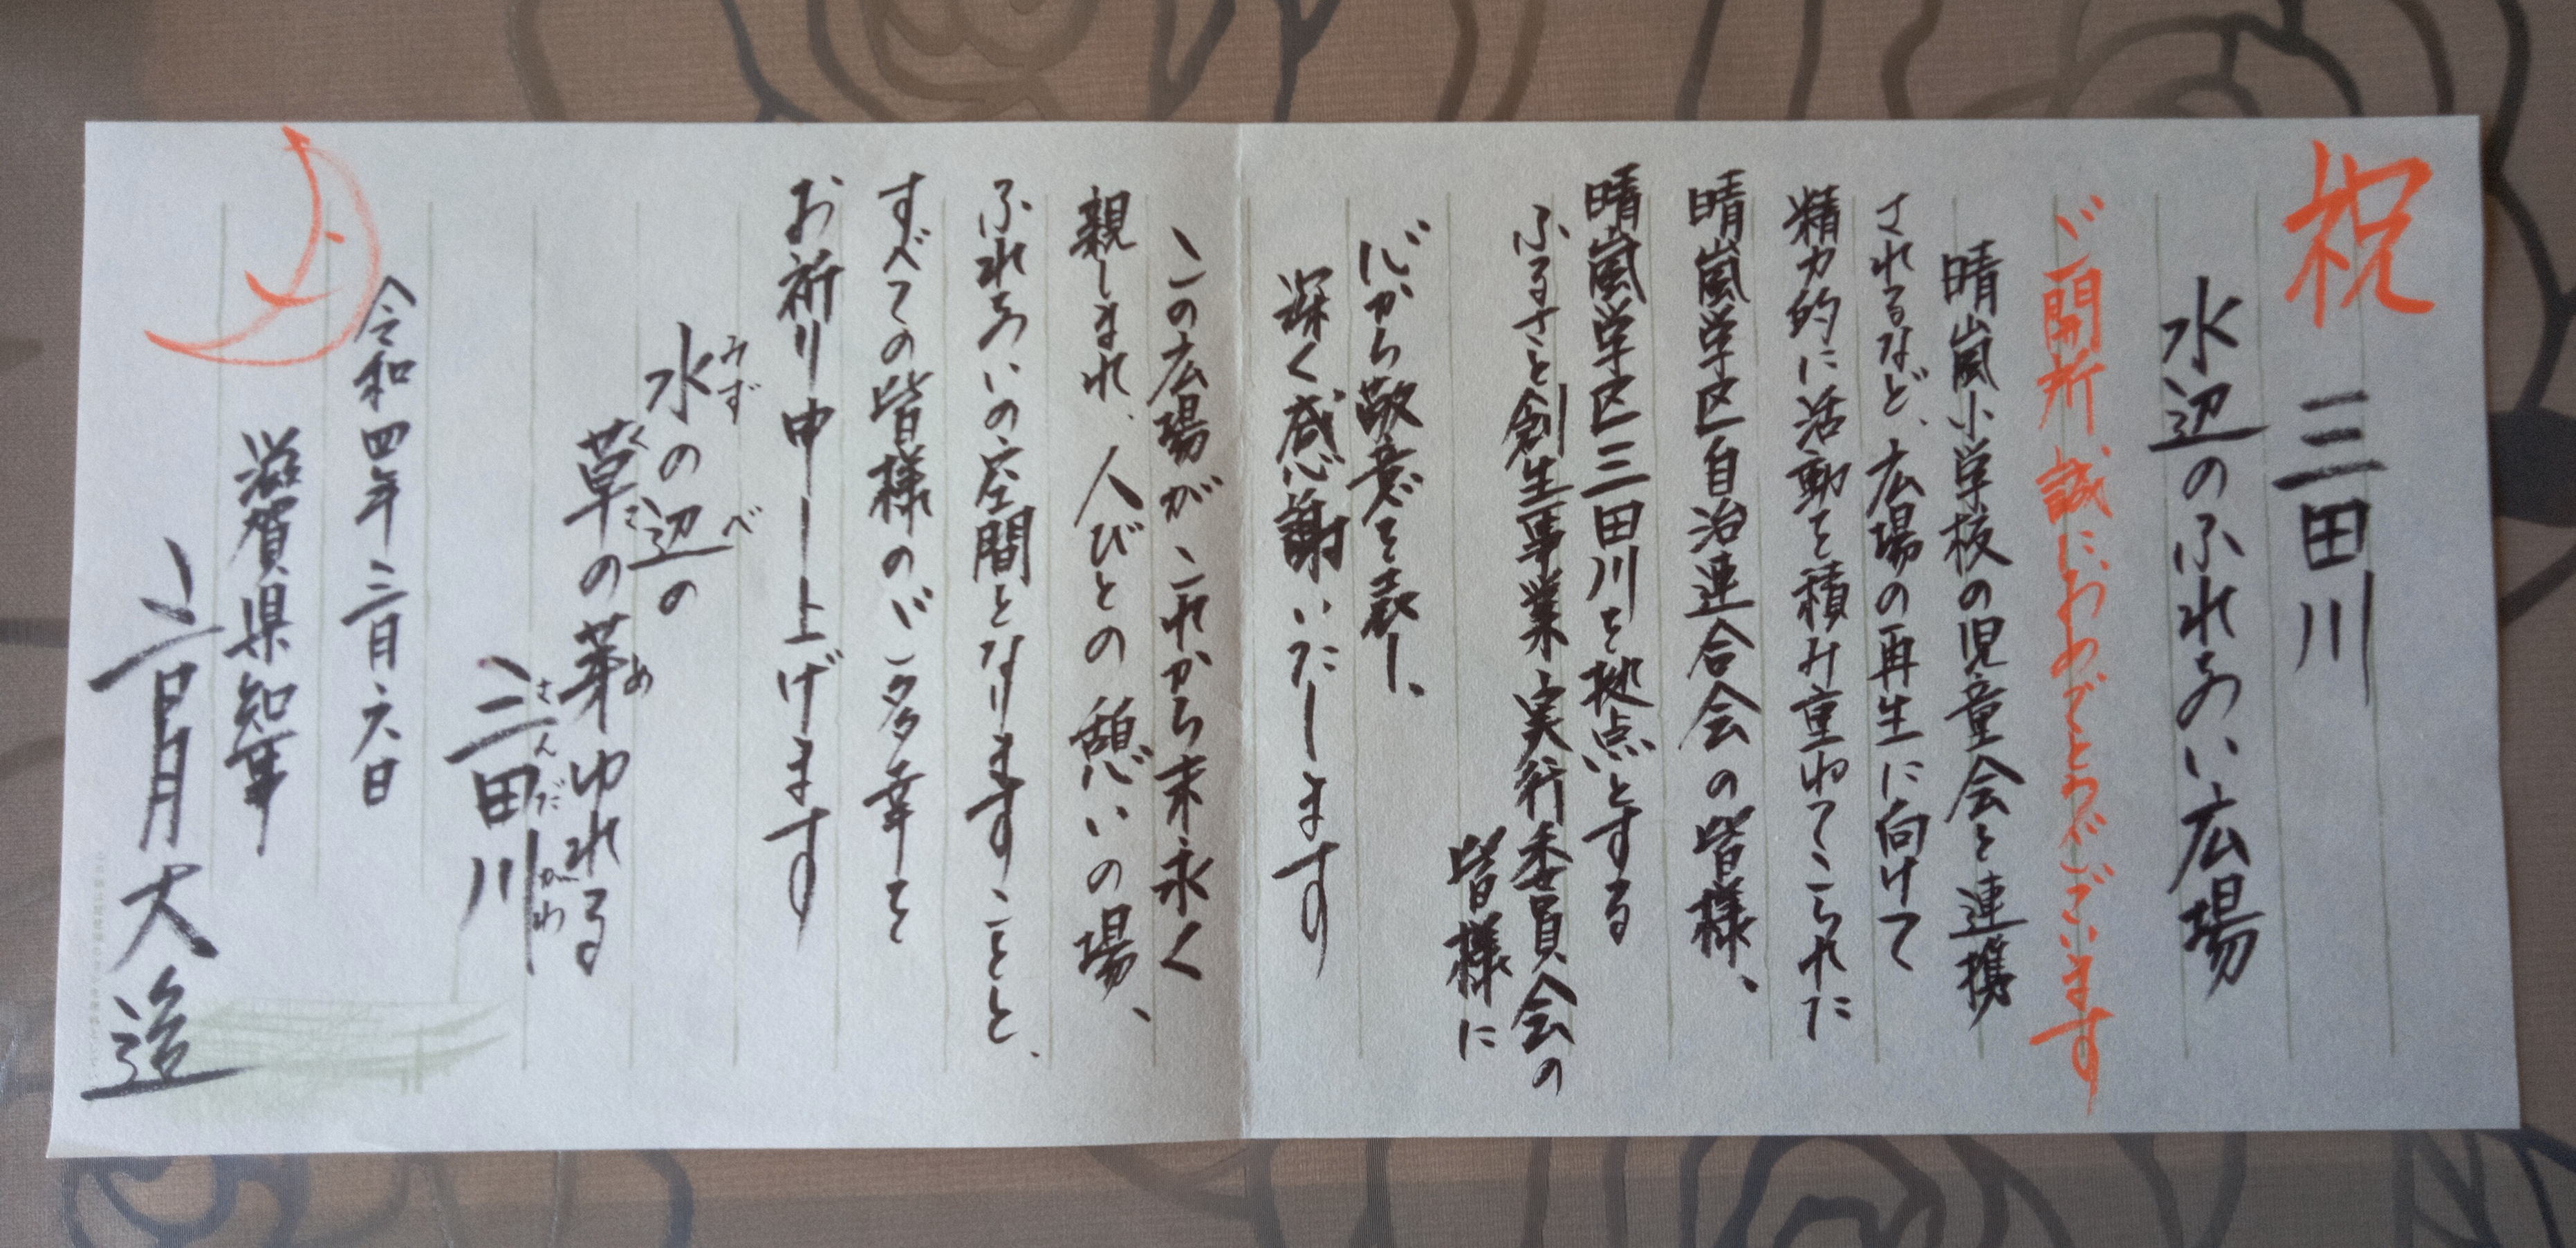 祝 三田川
水辺のふれあい広場
ご開所、誠におめでとうございます
晴嵐小学校の児童会と連携
されるなど、広場の再生に向けて
精力的に活動を積み重ねてこられた
晴嵐学区自治連合会の皆様、
晴嵐学区三田川を拠点とする
ふるさと創生事業実行委員会の
皆様に
心から敬意を表し、
深く感謝いたします
この広場がこれから末永く
親しまれ、人びとの憩いの場、
ふれあいの空間となりますことと、
すべての皆様のご多幸を
お祈り申し上げます
水の辺の
みず べ
草の芽ゆれる
くさ め
三田川
さんだがわ
令和四年三月六日
滋賀県知事
三日月大造